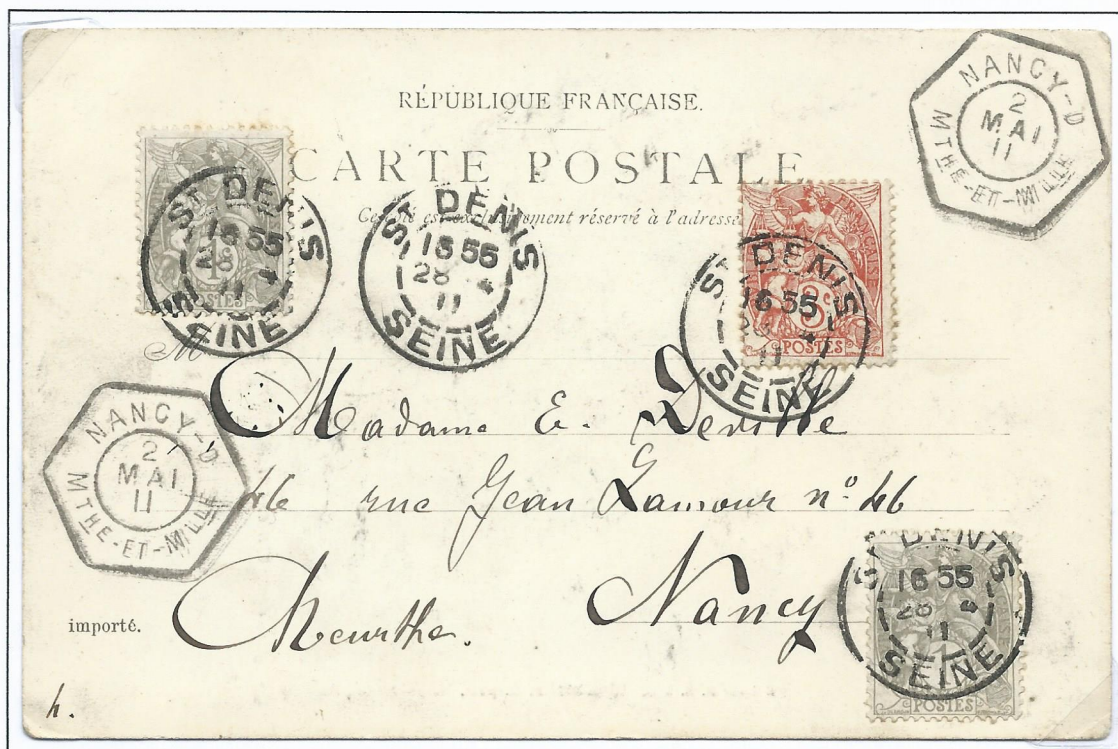 RÉPUBLIQUE FRANÇAISE.
CARTE POSTALE
Ce côté est exclusivement réservé à l'adresse
NANCY-D
2
MAI
11
MTHE-ET-MLLE
ST DENIS
16 55
28 4
11
SEINE
1
POSTES
ST DENIS
16 55
28 4
11
SEINE
FRANÇAISE
3
POSTES
ST DENIS
16 55
28 4
11
SEINE
M
Madame E. Deville
46 rue Jean Lamour n° 46
Nancy
Meurthe.
NANCY-D
2
MAI
11
MTHE-ET-MLLE
ST DENIS
16 55
28 4
11
SEINE
1
POSTES
importé.
h.